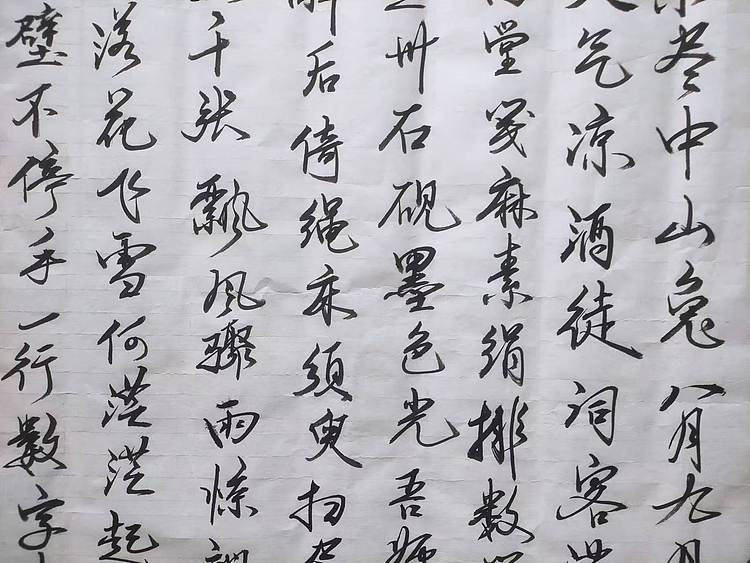 尽中山兔八月九月
气凉酒徒词客
堂笺麻素绢排数
州石砚墨色光吾师
后倚绳床须臾扫
千张飘风骤雨惊
落花飞雪何茫茫起
壁不停手一行数字